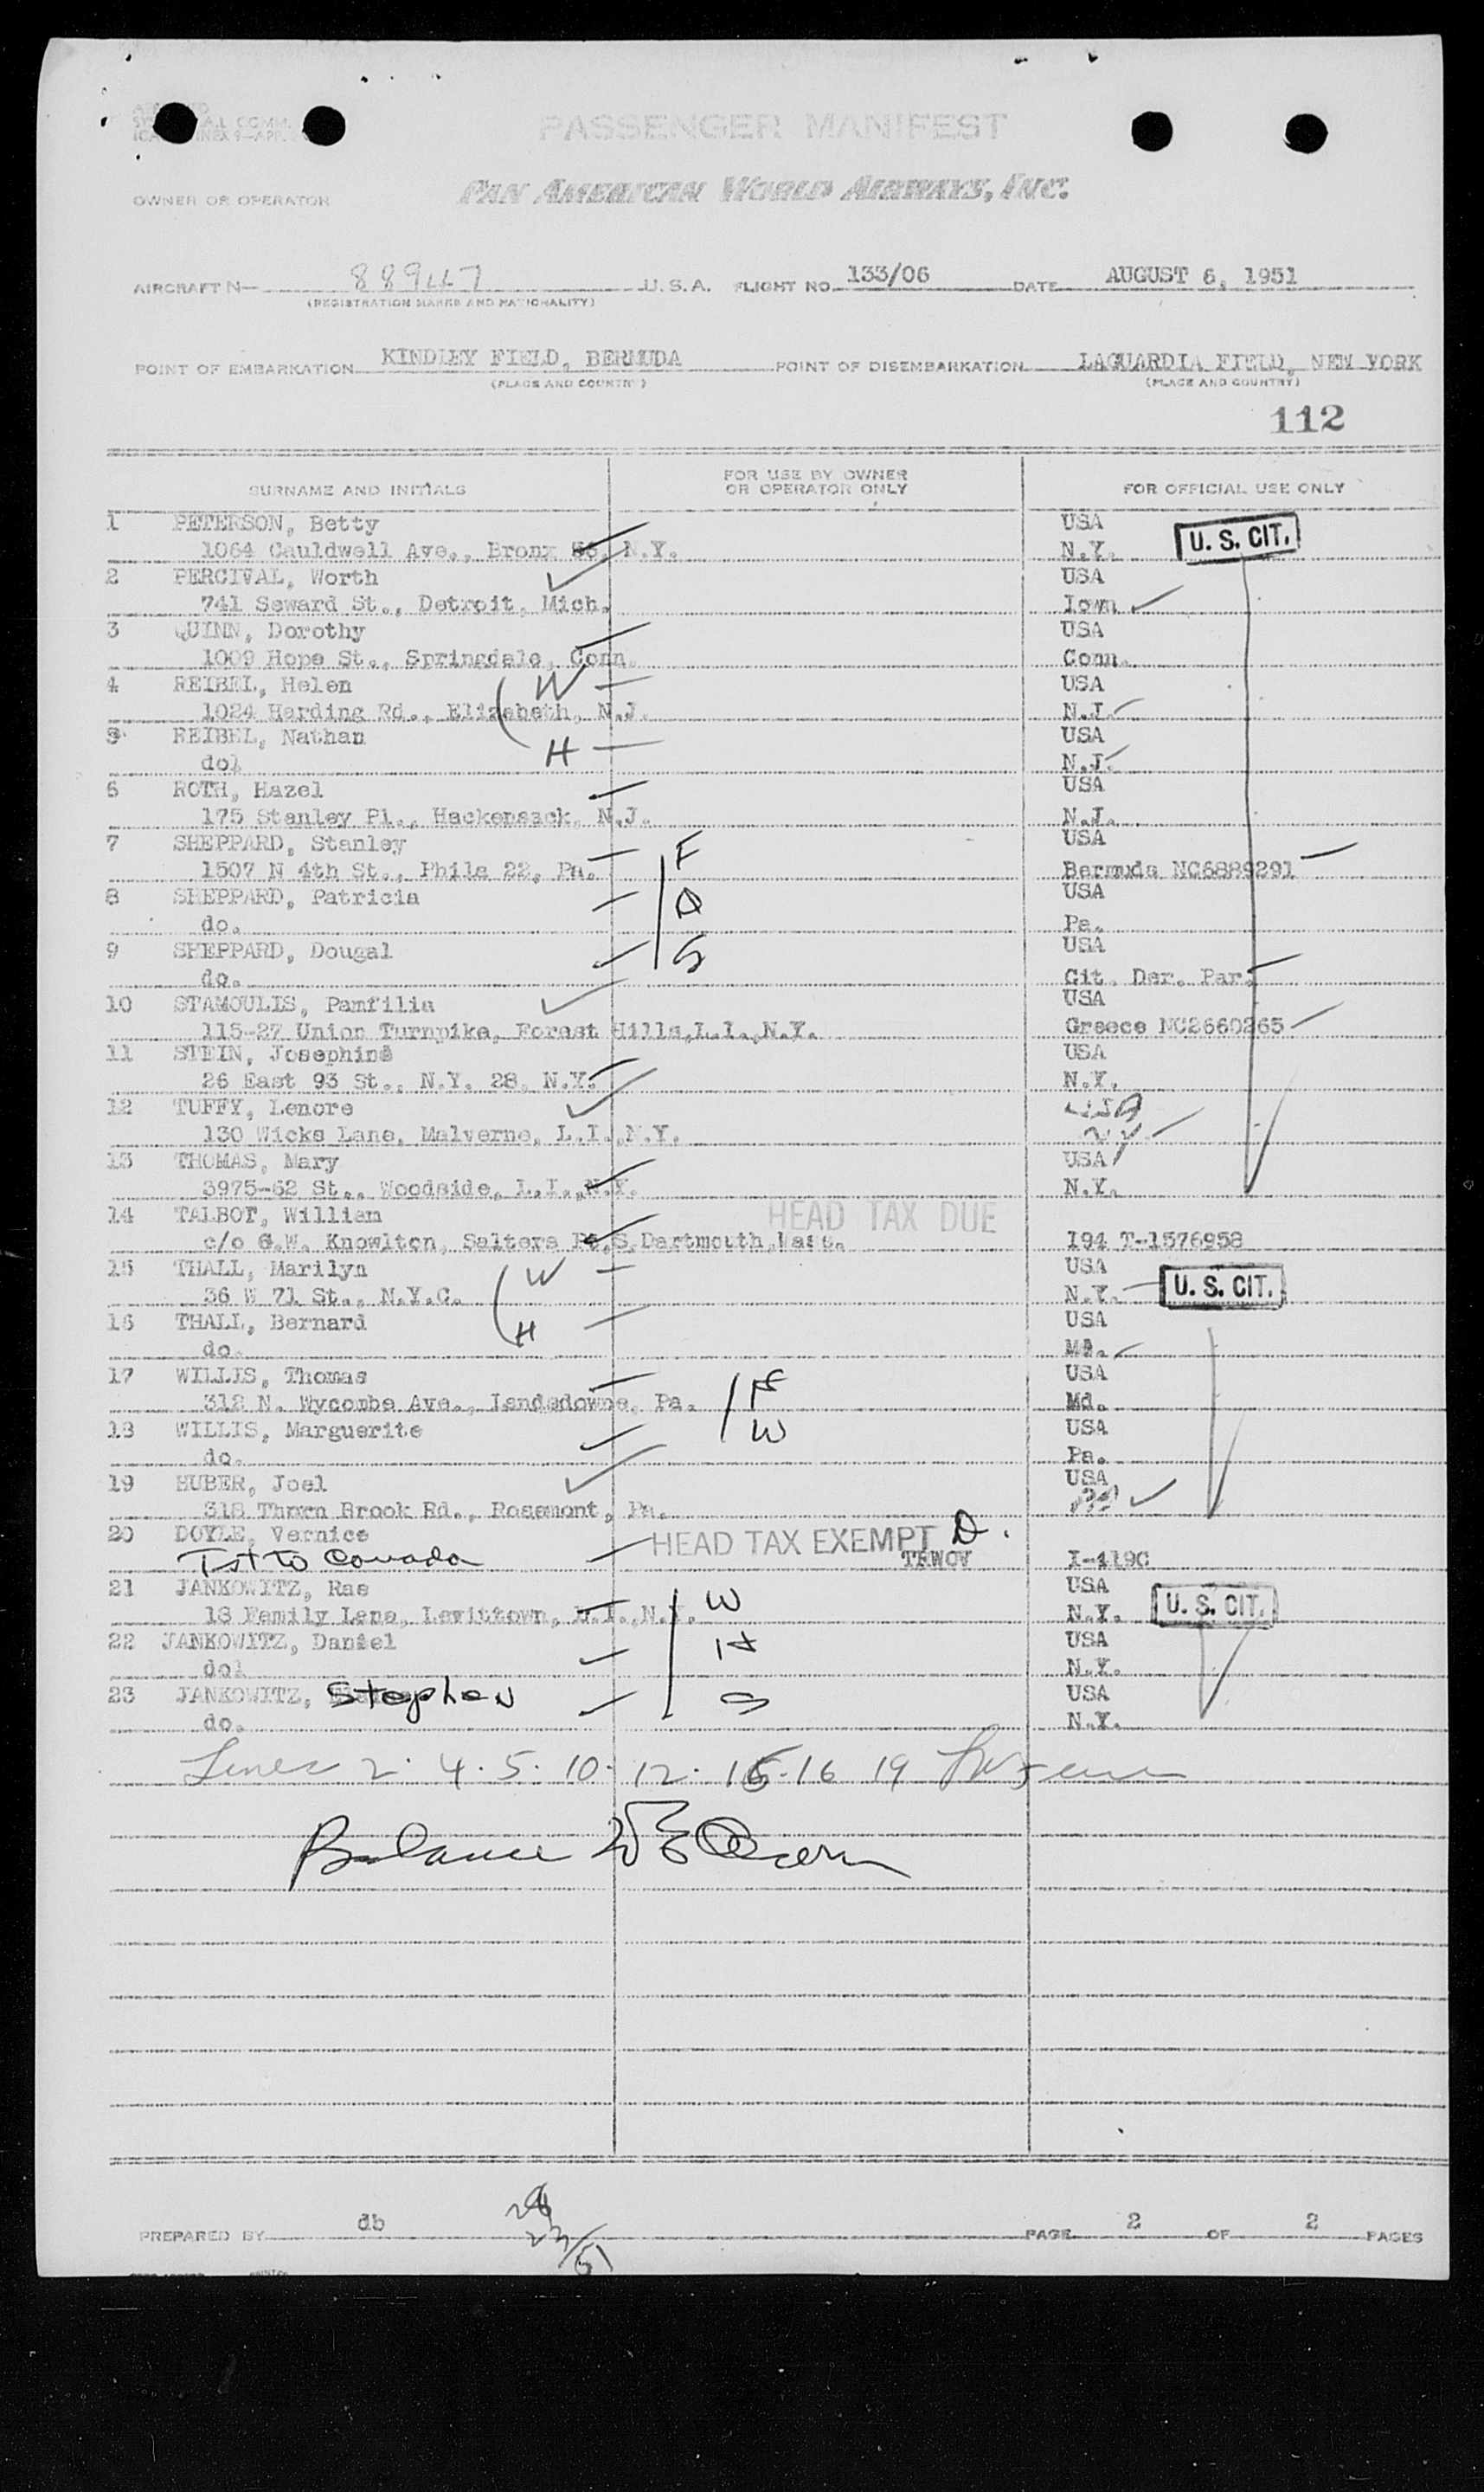 PASSENGER MANIFEST
OWNER OR OPERATOR PAN AMERICAN WORLD AIRWAYS, INC.
AIRCRAFT N— 889447 U.S.A. FLIGHT NO. 133/06 DATE AUGUST 6, 1951
(REGISTRATION MARKS AND NATIONALITY)
POINT OF EMBARKATION KINDLEY FIELD, BERMUDA POINT OF DISEMBARKATION LAGUARDIA FIELD, NEW YORK
(PLACE AND COUNTRY) (PLACE AND COUNTRY)
112
SURNAME AND INITIALS FOR USE BY OWNER OR OPERATOR ONLY FOR OFFICIAL USE ONLY
1 PETERSON, Betty USA
1064 Cauldwell Ave., Bronx 56, N.Y. N.Y. U. S. CIT.
2 PERCIVAL, Worth USA
741 Seward St., Detroit, Mich. Iowa
3 QUINN, Dorothy USA
1009 Hope St., Springdale, Conn. Conn.
4 REIBEL, Helen W USA
1024 Harding Rd., Elizabeth, N.J. N.J.
5 REIBEL, Nathan H USA
do. N.J.
6 ROTH, Hazel USA
175 Stanley Pl., Hackensack, N.J. N.J.
7 SHEPPARD, Stanley F USA
1507 N 4th St., Phila 22, Pa. Bermuda NC6889291
8 SHEPPARD, Patricia D USA
do. Pa.
9 SHEPPARD, Dougal S USA
do. Cit. Der. Par.
10 STAMOULIS, Pamfilia USA
115-27 Union Turnpike, Forest Hills,L.I.,N.Y. Greece NC2660265
11 STEIN, Josephine USA
26 East 93 St., N.Y. 28, N.Y. N.Y.
12 TUFFY, Lenore USA
130 Wicks Lane, Malverne, L.I.,N.Y. N.Y.
13 THOMAS, Mary USA
3975-62 St., Woodside, L.I.,N.Y. N.Y.
14 TALBOT, William HEAD TAX DUE
c/o G.W. Knowlton, Salters Pt,S.Dartmouth,Mass. I94 T-1576958
15 THALL, Marilyn W USA
36 W 71 St., N.Y.C. N.Y. U. S. CIT.
16 THALL, Bernard H USA
do.
17 WILLIS, Thomas H USA
312 N. Wycombe Ave., Landsdowne, Pa. Md.
18 WILLIS, Marguerite W USA
do. Pa.
19 HUBER, Joel USA
318 Thorn Brook Rd., Rosemont, Pa.
20 DOYLE, Vernice HEAD TAX EXEMPT D.
Tst to Canada TRWOV I-419C
21 JANKOWITZ, Rae W USA
18 Family Lane, Levittown, L.I.,N.Y. N.Y. U. S. CIT.
22 JANKOWITZ, Daniel H USA
do. N.Y.
23 JANKOWITZ, Stephen S USA
do. N.Y.
Lines 2. 4. 5. 10. 12. 15. 16 19
Balance
PREPARED BY db PAGE 2 OF 2 PAGES
23/51